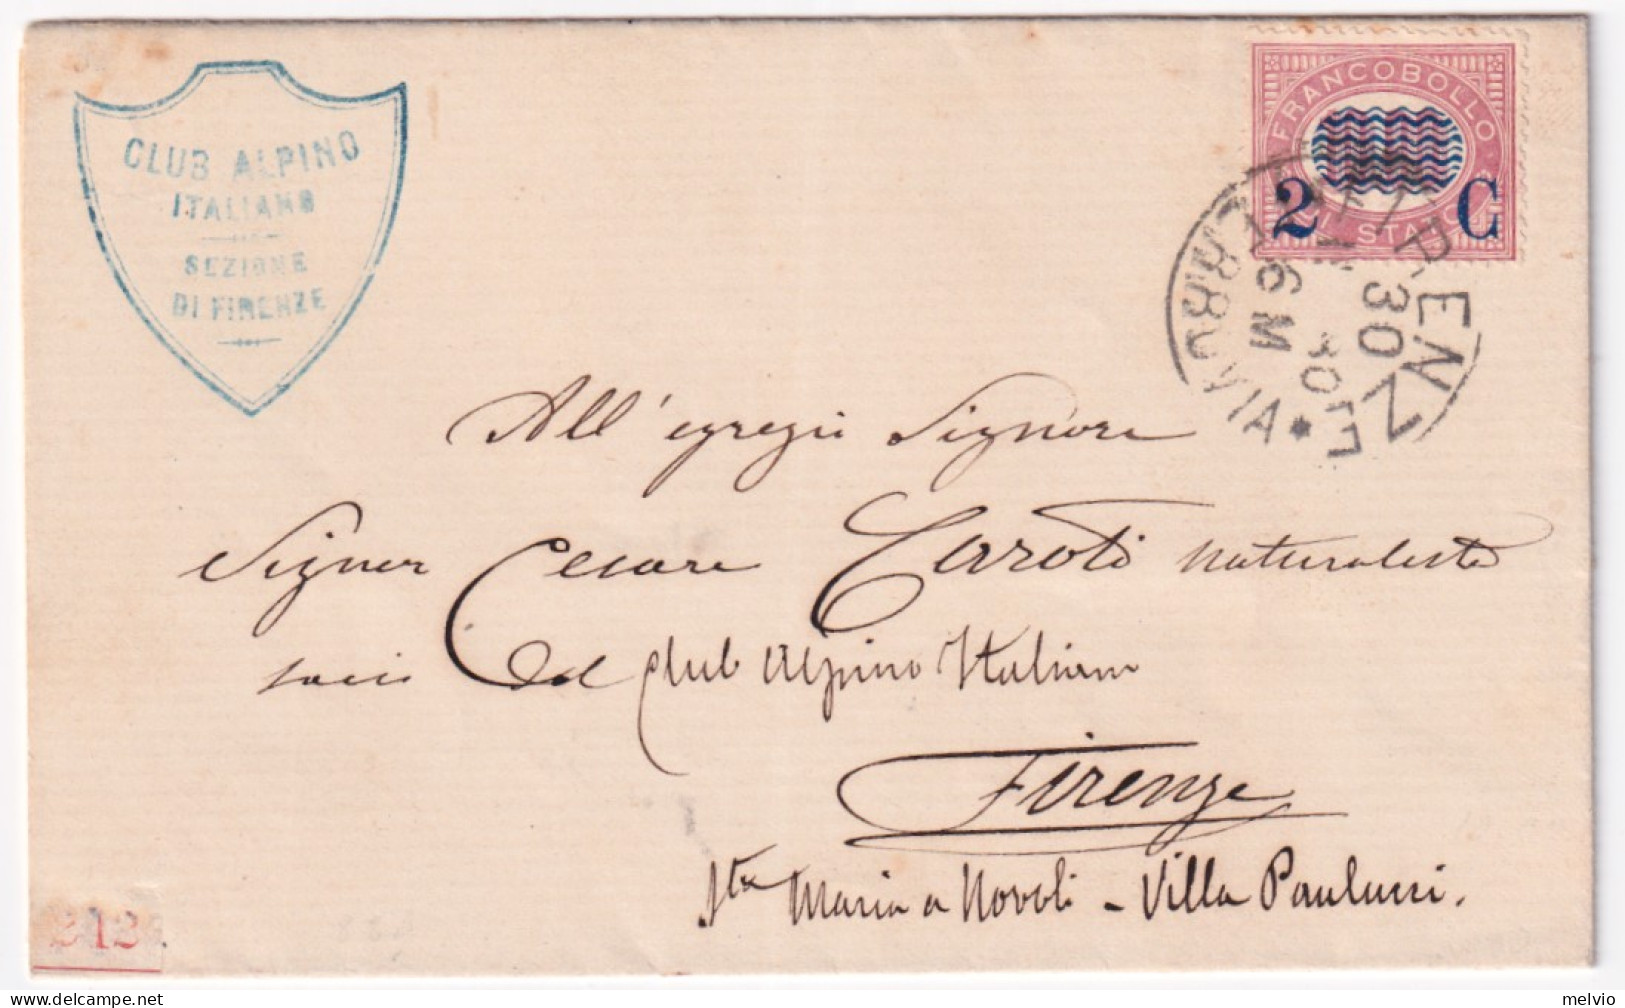 CLUB ALPINO
ITALIANO
SEZIONE
DI FIRENZE
FRANCOBOLLO
2 C
DI STATO
FIRENZE
FERROVIA
30
6 M
88
All' egregio Signore
Signor Cesare Caroti naturalista
socio del Club Alpino Italiano
Firenze
Sta Maria a Novoli - Villa Paulucci.
212
melvio